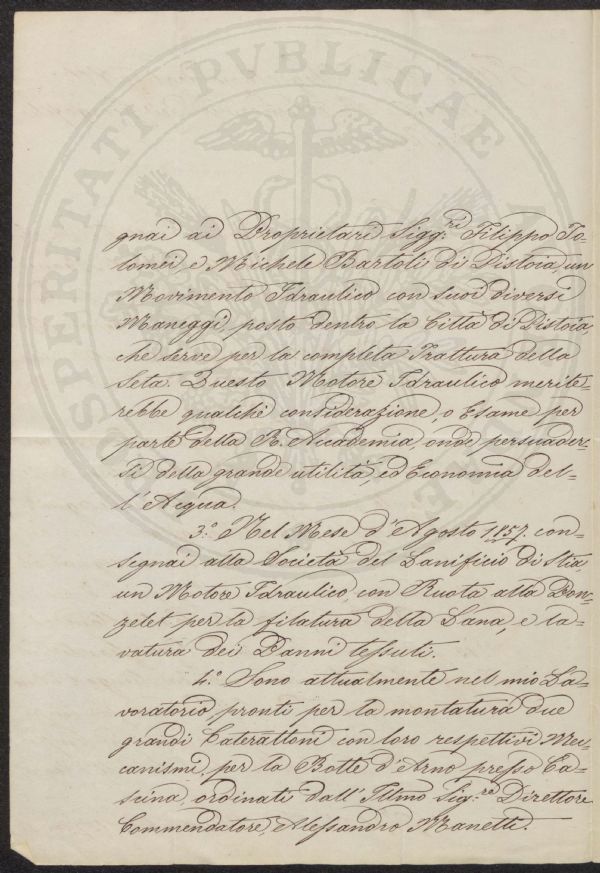 gnai ai Proprietari Sigg:ri Filippo To-
lomei e Michele Bartoli di Pistoia, un
Movimento Idraulico con suoi diversi
Maneggi, posto dentro la Città di Pistoia
che serve per la completa Trattura della
Seta. Questo Motore Idraulico merite-
rebbe qualche considerazione, o Esame per
parte della R. Accademia, onde persuader-
si della grande utilità, ed Economia del-
l'Acqua.
3.° Nel Mese d'Agosto 1857. con-
segnai alla Società del Lanificio di Stia,
un Motore Idraulico, con Ruota alla Pon-
zelet per la filatura della Lana, e la-
vatura dei Panni tessuti.
4.° Sono attualmente nel mio La-
voratorio pronti per la montatura due
grandi Caterattoni con loro respettivi Mec-
canismi, per la Botte d'Arno presso Ca-
scina, ordinati dall'Illmo Sig:re Direttore
Commendatore, Alessandro Manetti.